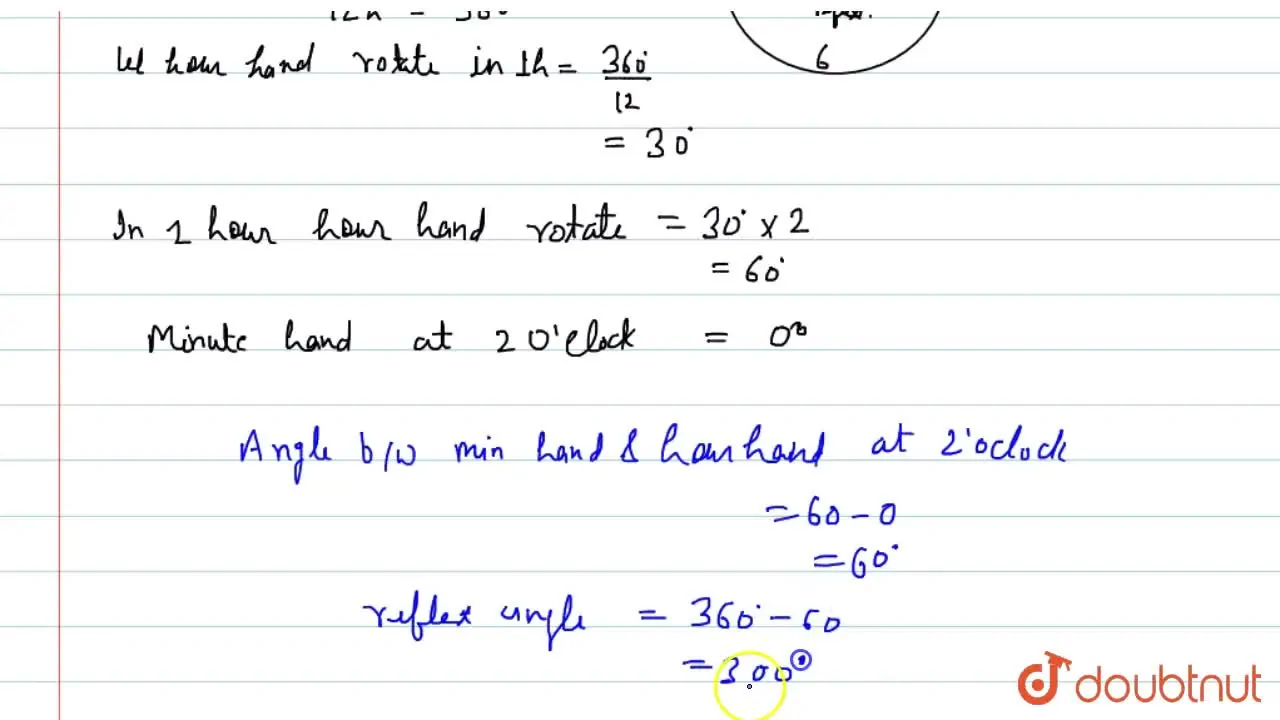 6
hour hand rotate in 1h = 360°
12
= 30°
In 2 hour hour hand rotate = 30° × 2
= 60°
Minute hand at 2 O'clock = 0°
Angle b/w min hand & hour hand at 2'oclock
= 60 - 0
= 60°
reflex angle = 360° - 60
= 300°
doubtnut